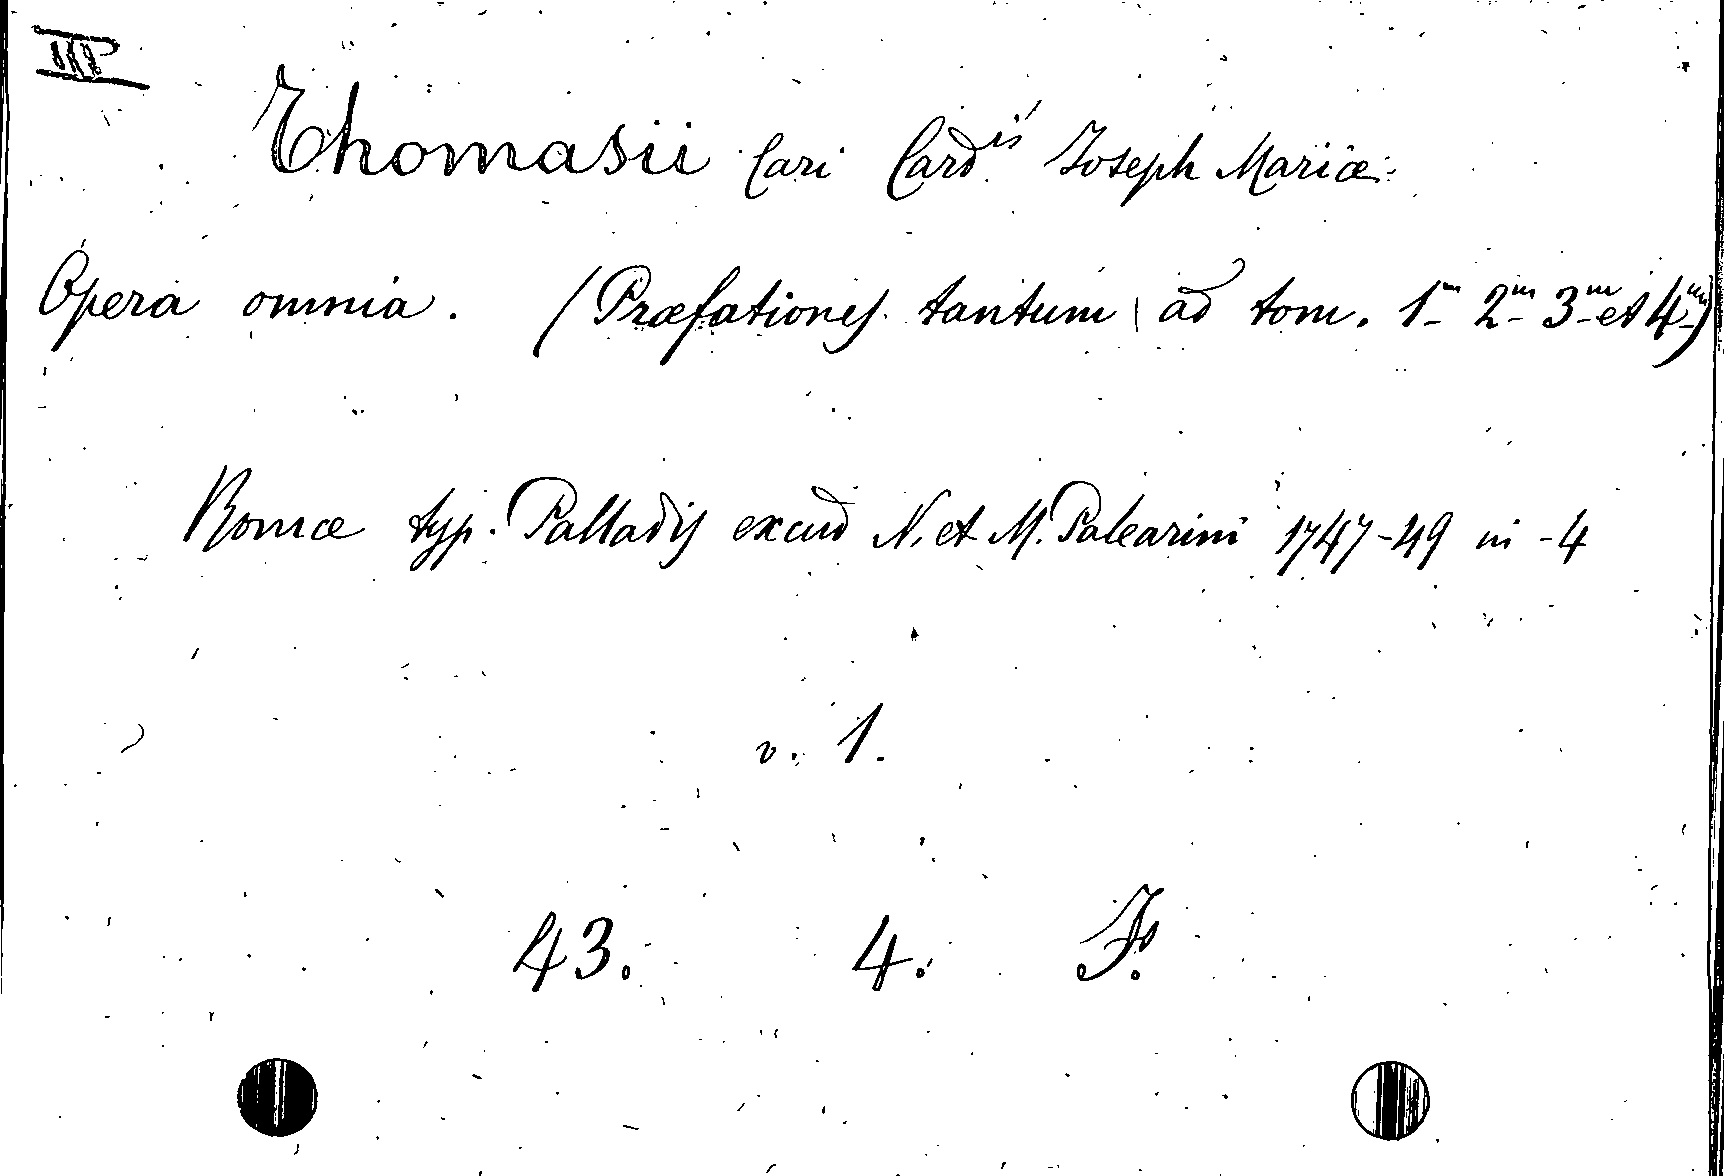 III
Thomasii Cari Card.is Joseph Mariæ
Opera omnia. (Præfationes tantum ad tom. 1m 2m 3m et 4um)
Romæ typ. Palladis excud N. et M. Palearini 1747-49 in -4
v. 1.
43. 4. J.